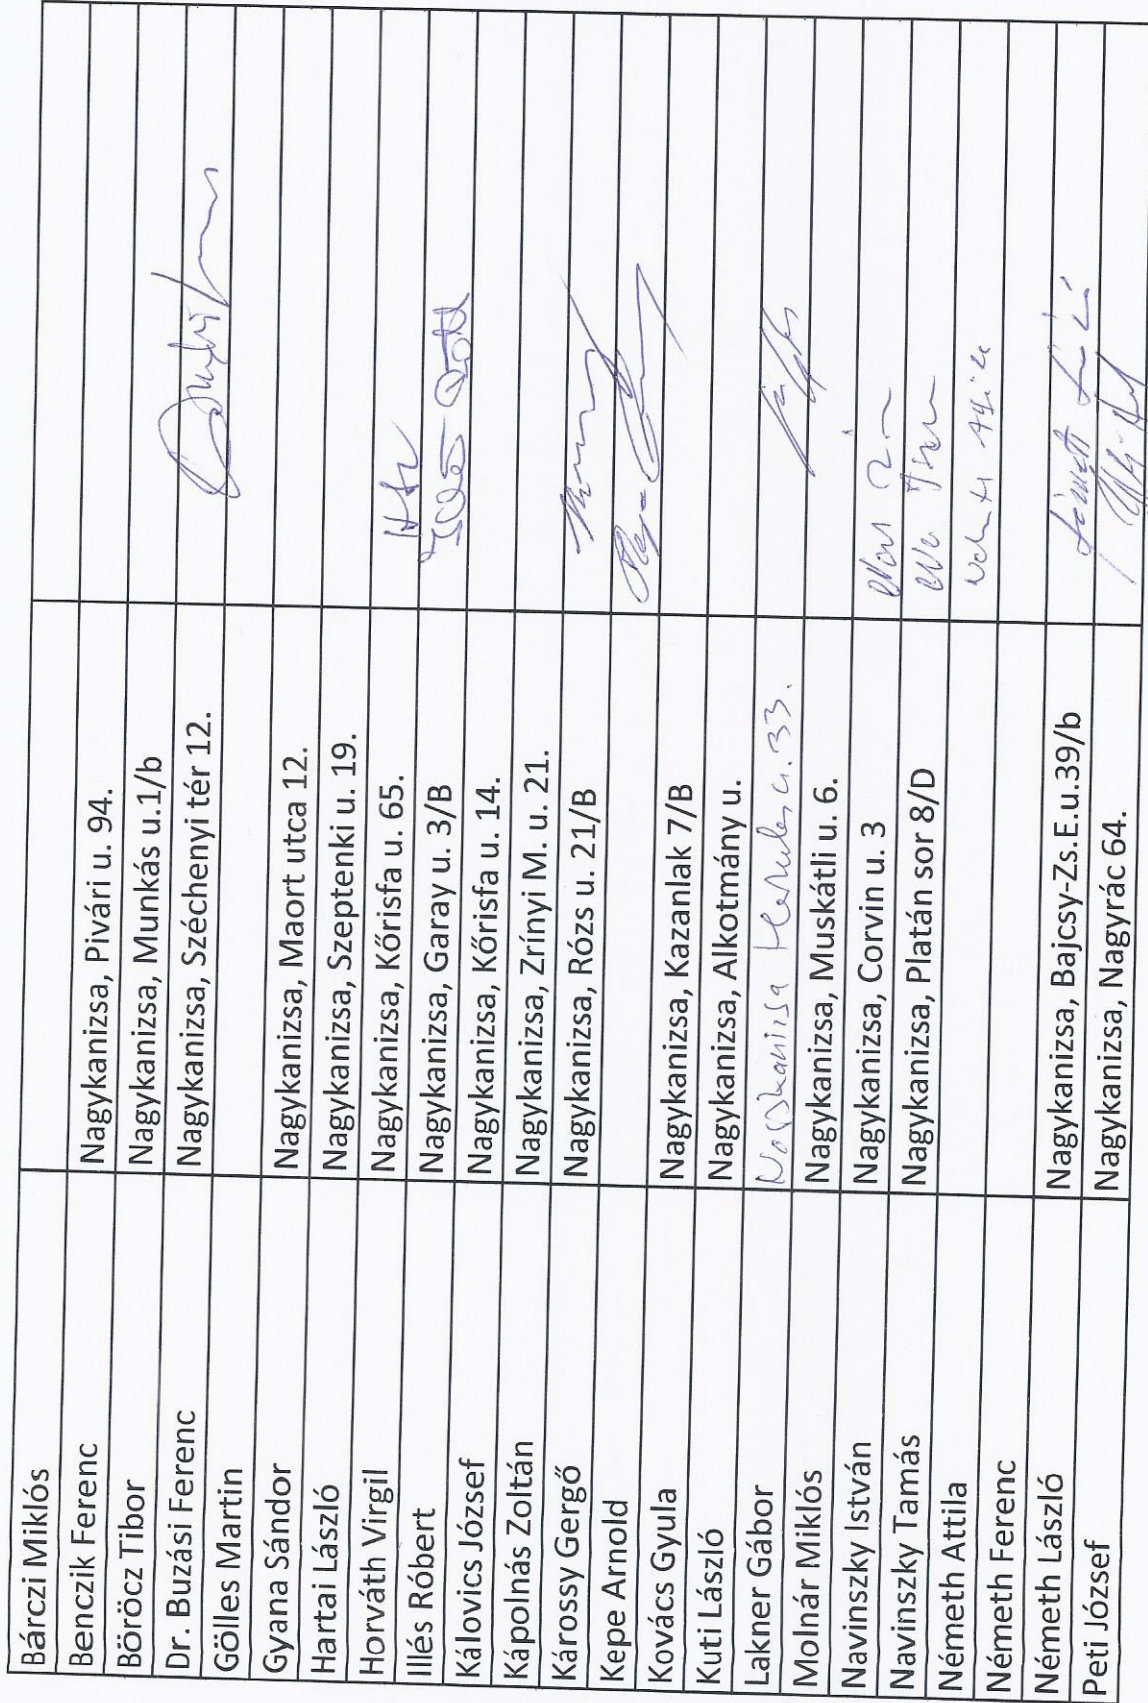 Bárczi Miklós
Benczik Ferenc Nagykanizsa, Pivári u. 94.
Böröcz Tibor Nagykanizsa, Munkás u.1/b
Dr. Buzási Ferenc Nagykanizsa, Széchenyi tér 12.
Gölles Martin
Gyana Sándor Nagykanizsa, Maort utca 12.
Hartai László Nagykanizsa, Szeptenki u. 19.
Horváth Virgil Nagykanizsa, Kőrisfa u. 65.
Illés Róbert Nagykanizsa, Garay u. 3/B
Kálovics József Nagykanizsa, Kőrisfa u. 14.
Kápolnás Zoltán Nagykanizsa, Zrínyi M. u. 21.
Károssy Gergő Nagykanizsa, Rózs u. 21/B
Kepe Arnold
Kovács Gyula Nagykanizsa, Kazanlak 7/B
Kuti László Nagykanizsa, Alkotmány u.
Lakner Gábor Nagykanizsa u. 33.
Molnár Miklós Nagykanizsa, Muskátli u. 6.
Navinszky István Nagykanizsa, Corvin u. 3
Navinszky Tamás Nagykanizsa, Platán sor 8/D
Németh Attila
Németh Ferenc
Németh László Nagykanizsa, Bajcsy-Zs.E.u.39/b
Peti József Nagykanizsa, Nagyrác 64.